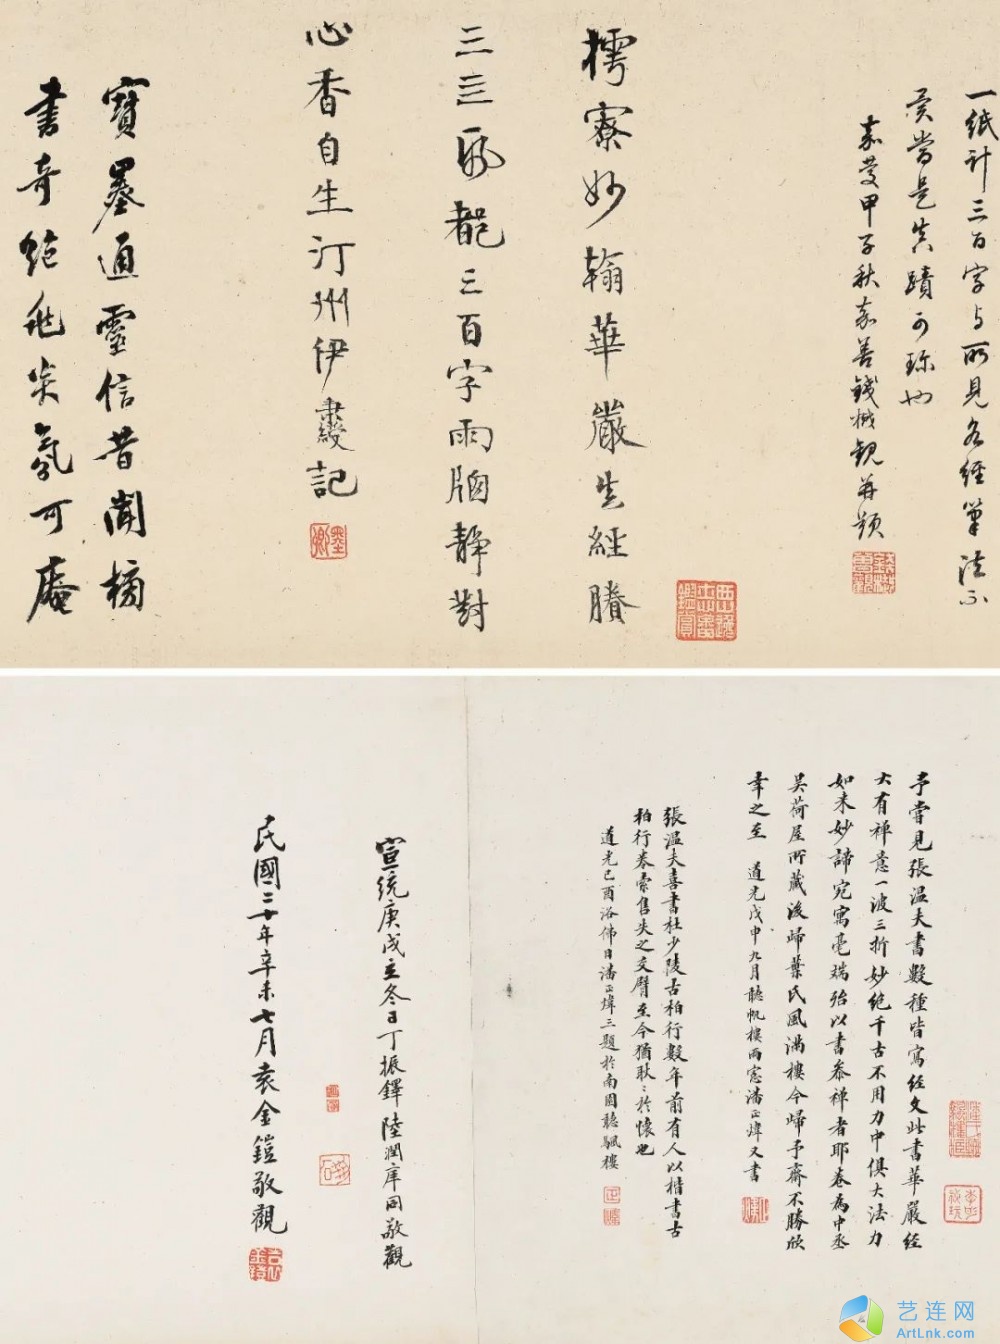 一紙計三百字与所見各經筆法不
異當是真蹟可珍也
嘉慶甲子秋嘉善錢樾觀并題
樗寮妙翰華嚴生經賸
三三函都三百字雨牕靜對
心香自生汀州伊秉綬記
墨卿
寶墨通靈信昔聞橅
書奇絶此尖氣可庵
予嘗見張溫夫書數種皆寫經文此書華嚴經
大有禅意一波三折妙絶千古不用力中俱大法力
如来妙諦宛寓毫端殆以書叅禅者耶卷為中丞
吳荷屋所藏後歸葉氏風滿樓今歸予齋不勝欣
幸之至 道光戊申九月聽帆樓雨窓潘正煒又書
張溫夫喜書杜少陵古柏行數年前有人以楷書古
柏行卷索售失之交臂至今猶耿〻於懷也
道光己酉浴佛日潘正煒三題於南園聽颿樓
宣統庚戌立冬日丁振鐸陸潤庠同敬觀
民國二十年辛未七月袁金鎧敬觀
艺连网
ArtLnk.com